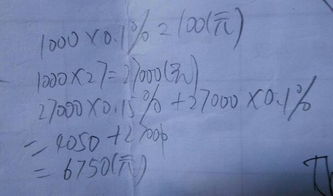 1000×0.1%=100(元)
1000×27=27000(元)
27000×0.15%+27000×0.1%
=4050+2700
=6750(元)